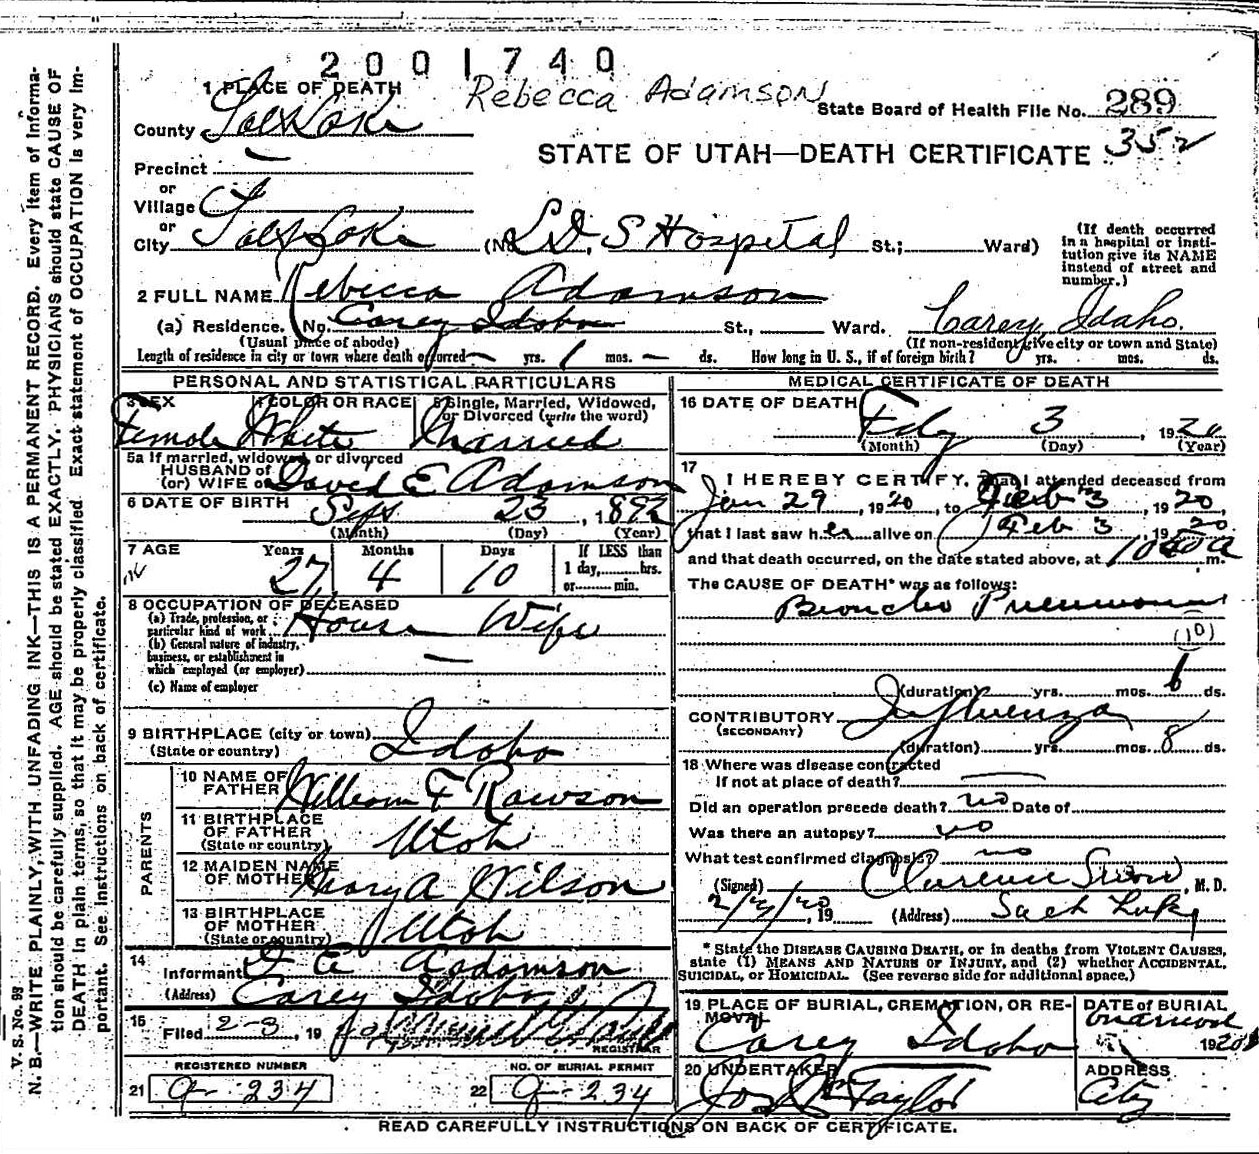 2001740
Rebecca Adamson
1 PLACE OF DEATH
State Board of Health File No. 289
County Salt Lake
STATE OF UTAH—DEATH CERTIFICATE 352
Precinct
or
Village
or
City Salt Lake (No. L.D.S Hospital St.; Ward)
(If death occurred in a hospital or insti-
tution give its NAME
instead of street and
number.)
2 FULL NAME Rebecca Adamson
(a) Residence. No. Carey Idaho St., Ward. Carey, Idaho.
(Usual place of abode) (If non-resident give city or town and State)
Length of residence in city or town where death occurred — yrs. 1 mos. — ds. How long in U. S., if of foreign birth? yrs. mos. ds.
PERSONAL AND STATISTICAL PARTICULARS
3 SEX 4 COLOR OR RACE 5 Single, Married, Widowed,
or Divorced (write the word)
Female White Married
5a If married, widowed, or divorced
HUSBAND of
(or) WIFE of David E Adamson
6 DATE OF BIRTH Sept 23, 1892
(Month) (Day) (Year)
7 AGE Years Months Days If LESS than
27 4 10 1 day, hrs.
or min.
8 OCCUPATION OF DECEASED
(a) Trade, profession, or
particular kind of work House Wife
(b) General nature of industry,
business, or establishment in
which employed (or employer) —
(c) Name of employer
9 BIRTHPLACE (city or town)
(State or country) Idaho
PARENTS
10 NAME OF
FATHER William F Rawson
11 BIRTHPLACE
OF FATHER
(State or country) Utah
12 MAIDEN NAME
OF MOTHER Mary A Wilson
13 BIRTHPLACE
OF MOTHER
(State or country) Utah
14
Informant D E Adamson
(Address) Carey Idaho
15
Filed 2-3, 19
REGISTRAR
REGISTERED NUMBER NO. OF BURIAL PERMIT
21 a-234 22 a-234
MEDICAL CERTIFICATE OF DEATH
16 DATE OF DEATH
Feby 3, 1920
(Month) (Day) (Year)
17
I HEREBY CERTIFY, That I attended deceased from
Jan 29, 1920, to Feb 3, 1920,
that I last saw her alive on Feb 3, 1920
and that death occurred, on the date stated above, at 1040 a m.
The CAUSE OF DEATH* was as follows:
Broncho Pneumonia
(10)
(duration) yrs. mos. 6 ds.
CONTRIBUTORY Influenza
(SECONDARY)
(duration) yrs. mos. 8 ds.
18 Where was disease contracted
If not at place of death? —
Did an operation precede death? no Date of
Was there an autopsy? no
What test confirmed diagnosis? no
(Signed) Clarence Snow, M. D.
2/4/20, 19 (Address) Salt Lake
* State the DISEASE CAUSING DEATH, or in deaths from VIOLENT CAUSES,
state (1) MEANS AND NATURE OF INJURY, and (2) whether ACCIDENTAL,
SUICIDAL, or HOMICIDAL. (See reverse side for additional space.)
19 PLACE OF BURIAL, CREMATION, OR RE-
MOVAL
Carey Idaho
DATE of BURIAL
1920
20 UNDERTAKER
Jos Taylor
ADDRESS
City
READ CAREFULLY INSTRUCTIONS ON BACK OF CERTIFICATE.
V. S. No. 93
N. B.—WRITE PLAINLY, WITH UNFADING INK—THIS IS A PERMANENT RECORD. Every item of informa-
tion should be carefully supplied. AGE should be stated EXACTLY. PHYSICIANS should state CAUSE OF
DEATH in plain terms, so that it may be properly classified. Exact statement of OCCUPATION is very im-
portant. See instructions on back of certificate.